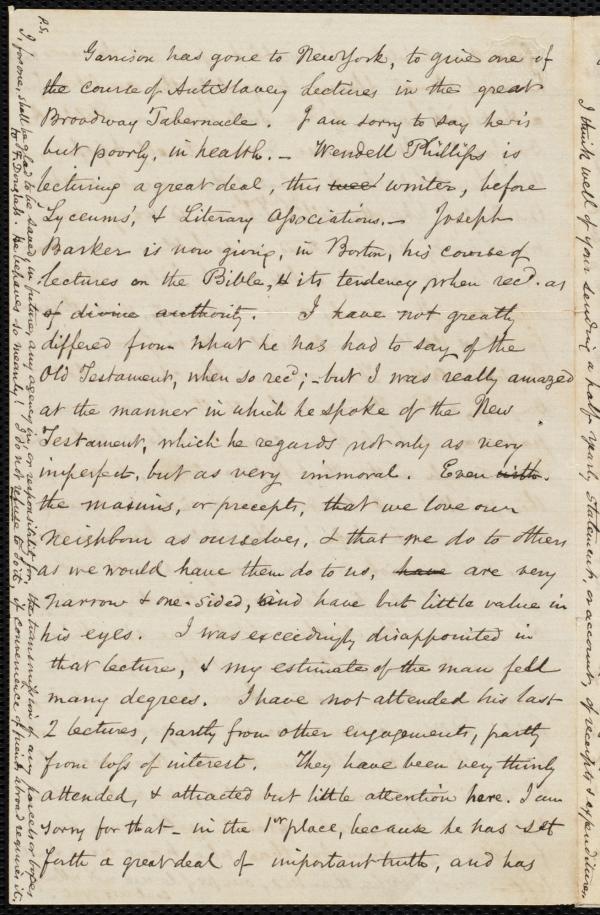 Garrison has gone to New York, to give one of
the course of Antislavery Lectures in the great
Broadway Tabernacle. I am sorry to say he is
but poorly, in health. – Wendell Phillips is
lecturing a great deal, this winter, before
Lyceums', & Literary Associations. – Joseph
Barker is now giving, in Boston, his course of
lectures on the Bible, & its tendency when recd. as
of divine authority. I have not greatly
differed from what he has had to say of the
Old Testament, when so recd; – but I was really amazed
at the manner in which he spoke of the New
Testament, which he regards not only as very
imperfect, but as very immoral. Even
the maxims, or precepts, that we love our
neighbour as ourselves, & that we do to others
as we would have them do to us, have are very
narrow & one-sided, and have but little value in
his eyes. I was exceedingly disappointed in
that lecture, & my estimate of the man fell
many degrees. I have not attended his last
2 lectures, partly from other engagements, partly
from loss of interest. They have been very thinly
attended, & attracted but little attention here. I am
sorry for that – in the 1st place, because he has set
forth a great deal of important truth, and has
P.S.
I, for one, shall be glad to be saved, in future, any agency in, or responsibility for, the transmission of any parcels or boxes
to F. Douglass. He behaves so meanly! I do not refuse to do it, if convenience of friends abroad requires it.
I think well of your sending a half yearly statement, or account, of receipts & expenditures